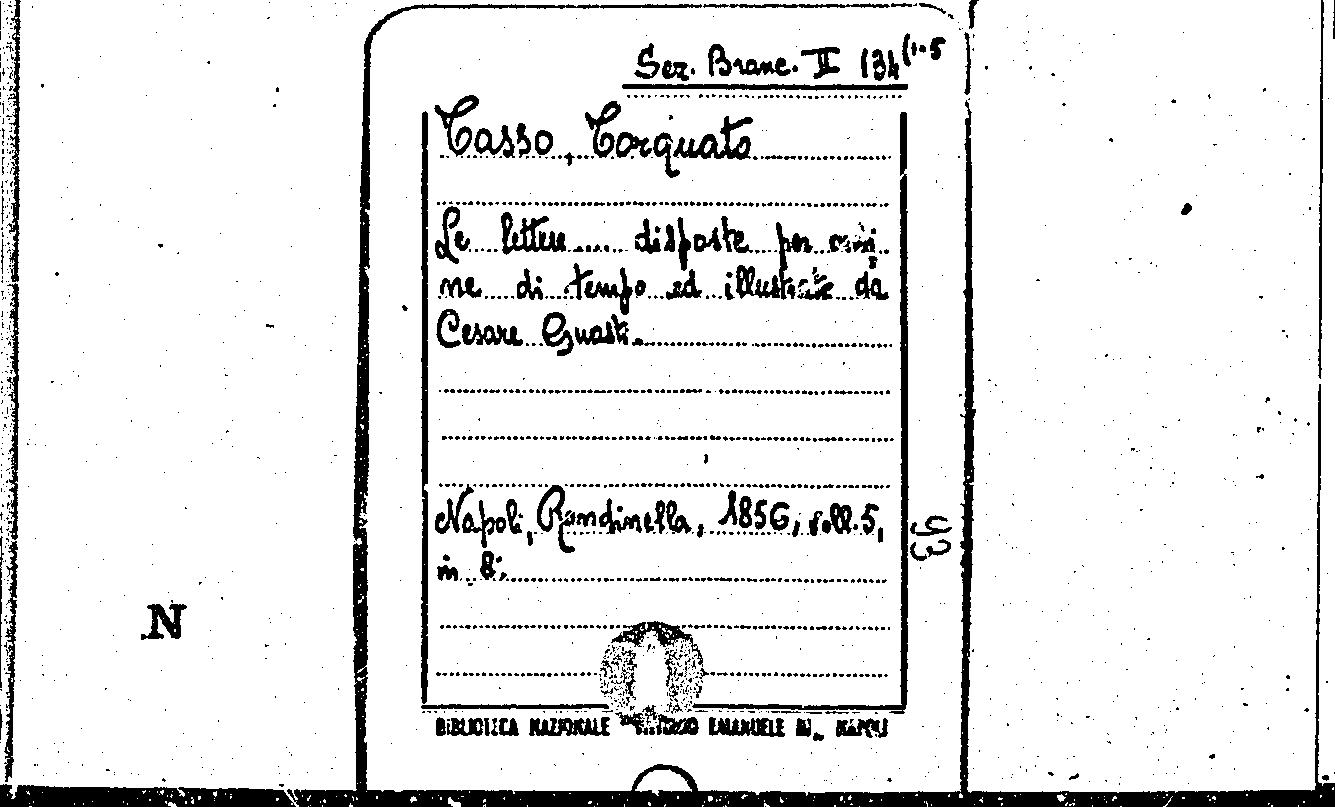 Sez. Branc. II 134(1-5
Tasso, Torquato
Le lettere.... disposte per ordi
ne di tempo ed illustrate da
Cesare Guasti.
Napoli, Rondinella, 1856, voll. 5,
in 8°.
93
N
BIBLIOTECA NAZIONALE VITTORIO EMANUELE III - NAPOLI